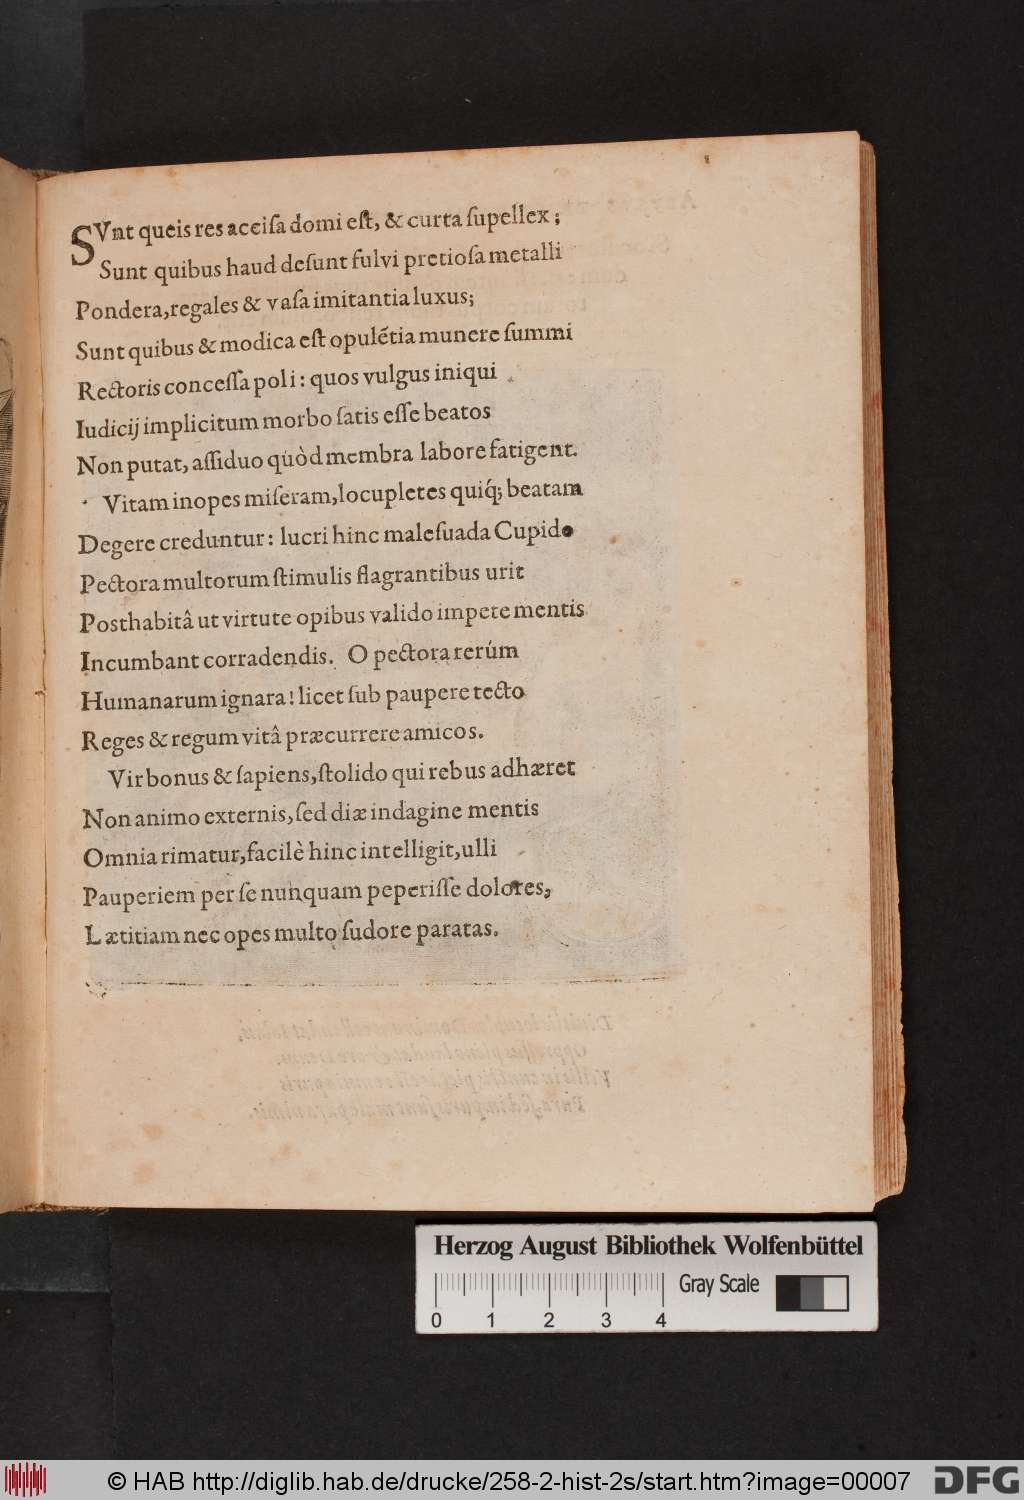 SVnt queis res acciſa domi eſt, & curta ſupellex ;
Sunt quibus haud deſunt fulvi pretioſa metalli
Pondera, regales & vaſa imitantia luxus;
Sunt quibus & modica eſt opulẽtia munere ſummi
Rectoris conceſſa poli : quos vulgus iniqui
Iudicij implicitum morbo ſatis eſſe beatos
Non putat, aſſiduo quòd membra labore fatigent.
Vitam inopes miſeram, locupletes quiq́; beatam
Degere creduntur : lucri hinc maleſuada Cupido
Pectora multorum ſtimulis flagrantibus urit
Posthabitâ ut virtute opibus valido impete mentis
Incumbant corradendis. O pectora rerúm
Humanarum ignara! licet ſub paupere tecto
Reges & regum vitâ præcurrere amicos.
Vir bonus & ſapiens, ſtolido qui rebus adhæret
Non animo externis, ſed diæ indagine mentis
Omnia rimatur, facilè hinc intelligit, ulli
Pauperiem per ſe nunquam peperiſſe dolores,
Lætitiam nec opes multo ſudore paratas.
Herzog August Bibliothek Wolfenbüttel
Gray Scale
0 1 2 3 4
© HAB http://diglib.hab.de/drucke/258-2-hist-2s/start.htm?image=00007
DFG